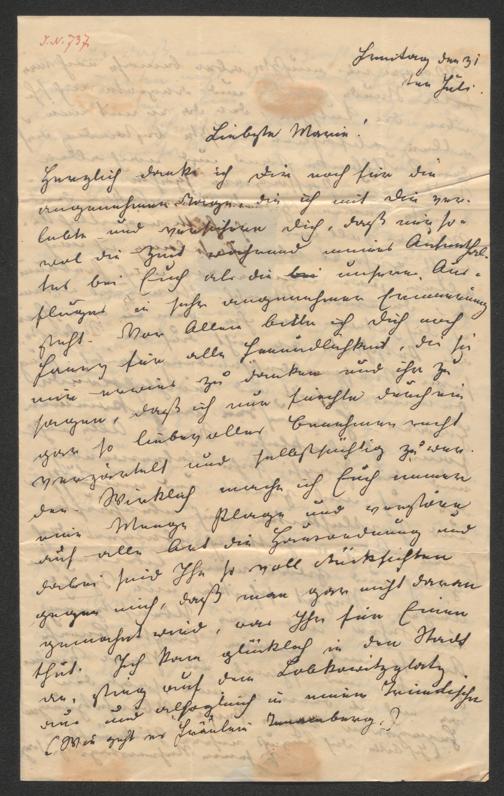 I.N. 737
Sonntag den 31
ten Juli.
Liebste Marie!
Herzlich danke ich Dir noch für die
angenehmen Tage, die ich mit Dir ver-
lebte und versichere Dich, daß mir so-
wol die Zeit während meines Aufenthal-
tes bei Euch als die bei unserm Aus-
fluges in sehr angenehmer Erinnerung
steht. Vor Allem bitte ich Dich noch
Fanny für alle Freundlichkeit, die sie
mir erwies zu danken und ihr zu
sagen, daß ich nur fürchte durch ein
gar so liebevolles Benehmen recht
verzärtelt und selbstsüchtig zu wer-
den. Wirklich mache ich Euch immer
eine Menge Plage und verstöre
auf alle Art die Hausordnung und
dabei seid Ihr so voll Rücksichten
gegen mich, daß man gar nicht daran
gemahnt wird, was Ihr für Einen
thut. Ich kam glücklich in der Stadt
an, stieg auf dem Lobkowitzplatz
aus und alsogleich in meine
(Wie geht es Fräulein